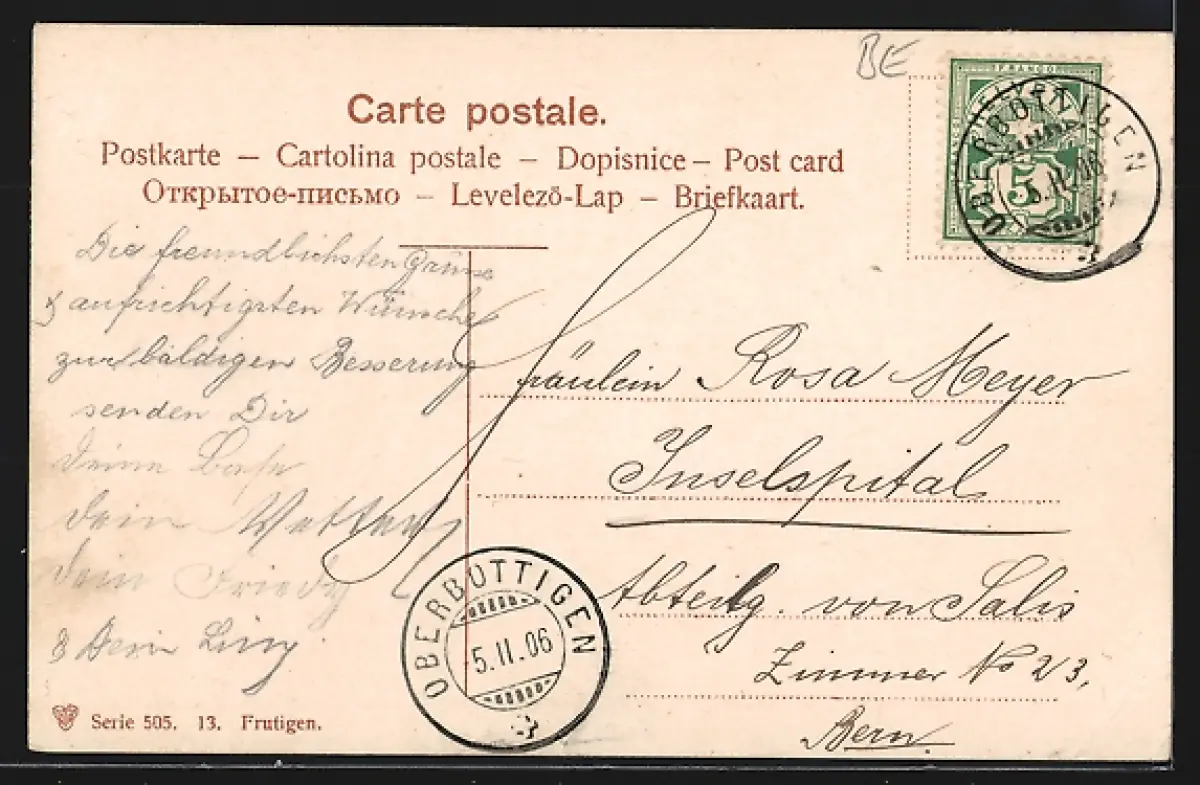 BE
Carte postale.
Postkarte – Cartolina postale – Dopisnice – Post card
Открытое-письмо – Levelező-Lap – Briefkaart.
FRANCO
HELVETIA
5
OBERBOTTIGEN
5.II.06
Die freundlichsten Grüsse
& aufrichtigsten Wünsche
zur baldigen Besserung
senden Dir
deine Base
dein Vetter
dein Friedy
& Dein Liny
Fräulein Rosa Meyer
Inselspital
Abteilg. von Salis
Zimmer No 23.
Bern.
OBERBOTTIGEN
5.II.06
Serie 505. 13. Frutigen.